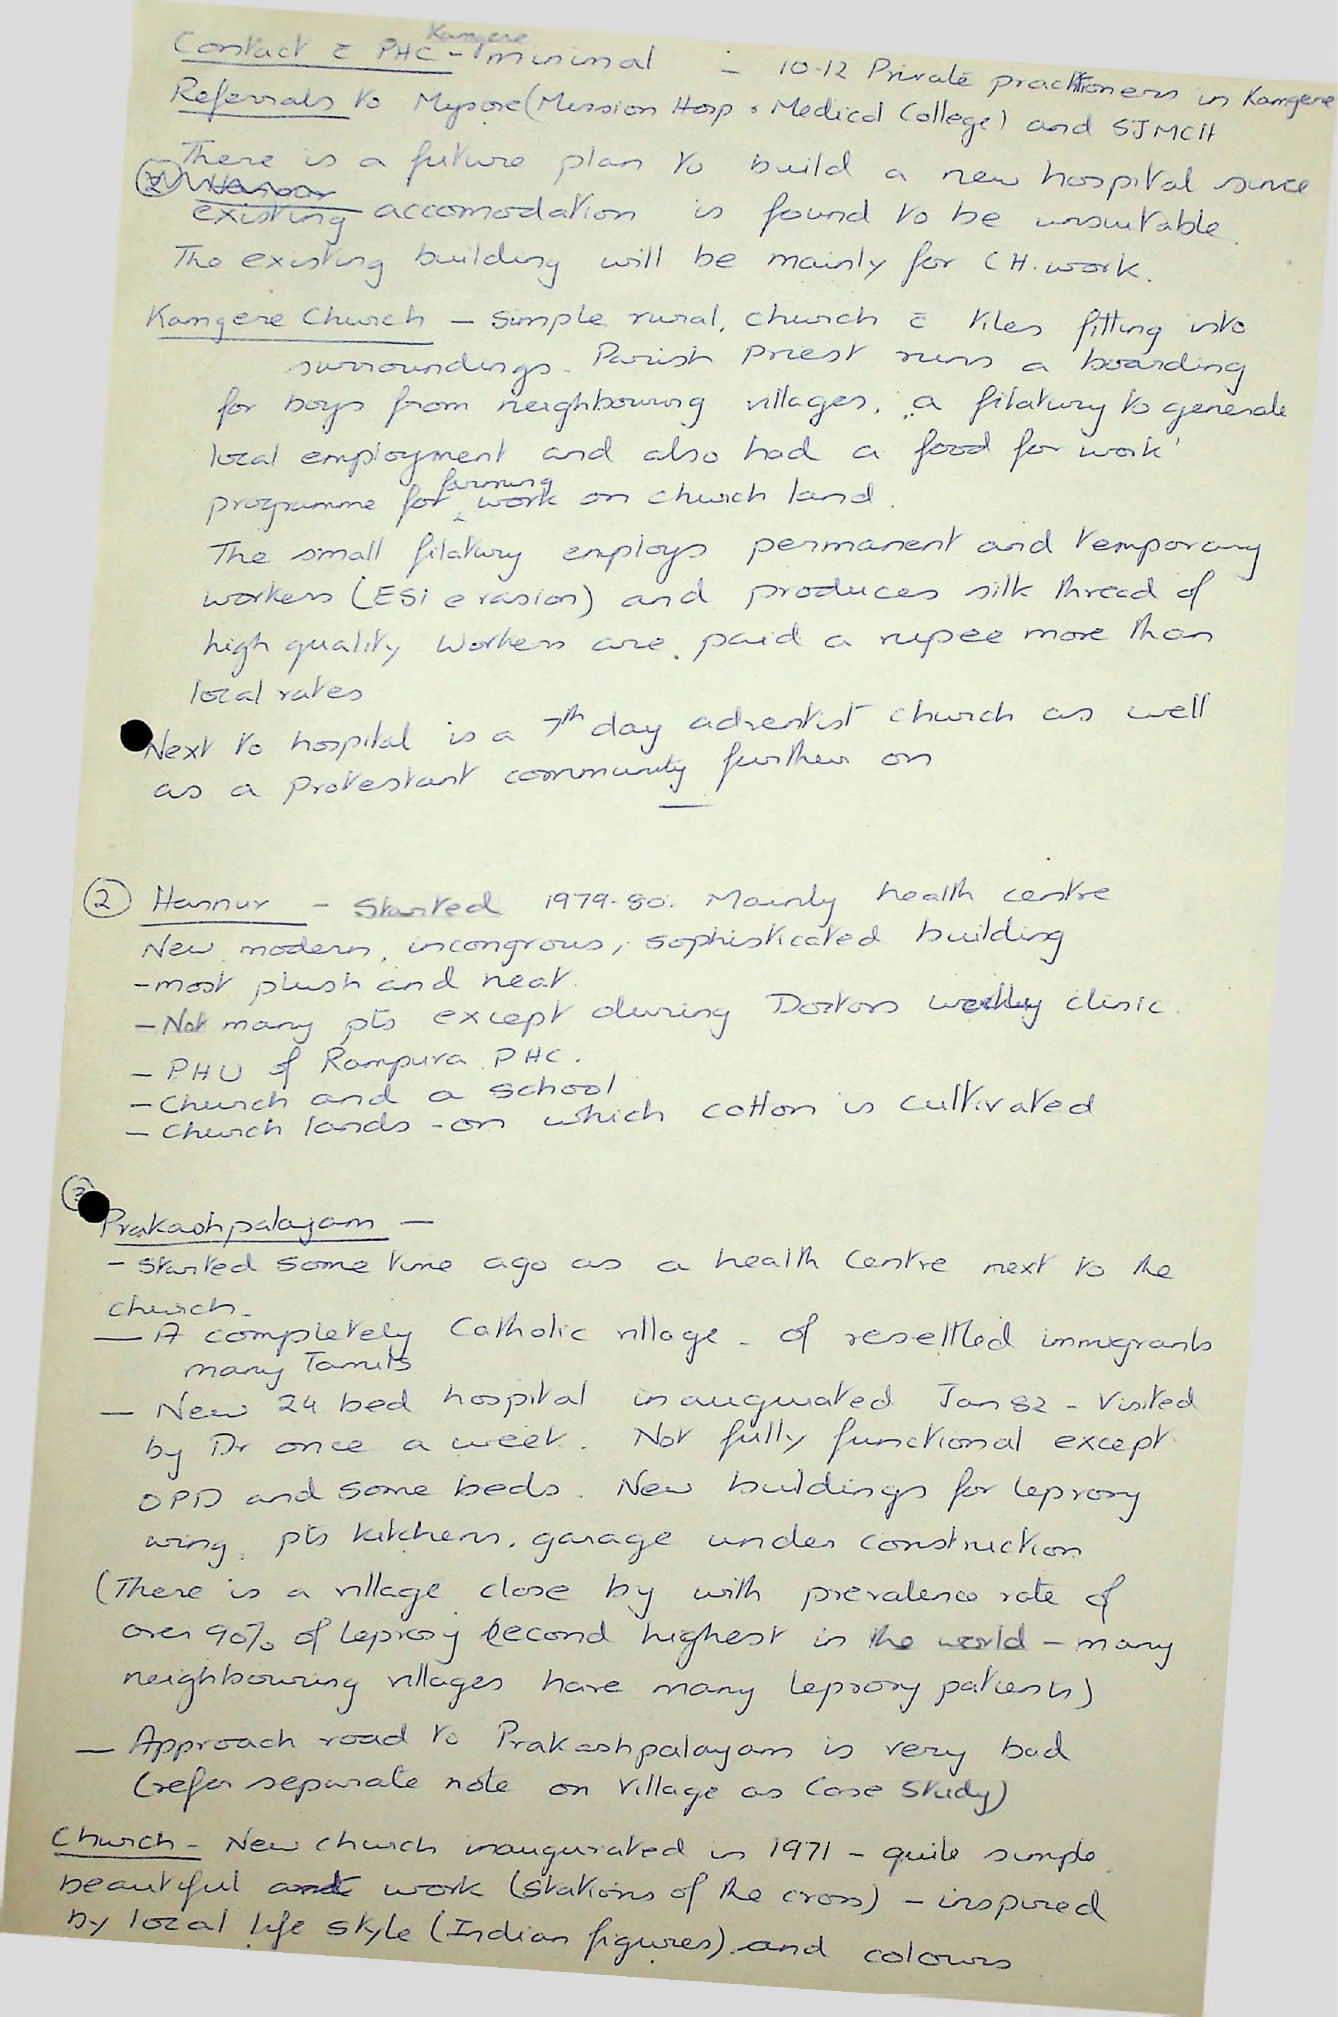 Contact c̄ PHC - Kamgere minimal - 10-12 Private practitioners in Kamgere
Referrals to Mysore (Mission Hosp & Medical College) and SJMCH
There is a future plan to build a new hospital since
② Hannur
existing accomodation is found to be unsuitable.
The existing building will be mainly for CH. work.
Kamgere Church - Simple rural, church c̄ tiles fitting into
surroundings. Parish Priest runs a boarding
for boys from neighbouring villages, a filatury to generate
local employment and also had a food for work'
programme for farming work on church land.
The small filatury employs permanent and temporary
workers (ESI evasion) and produces silk thread of
high quality. Workers are paid a rupee more than
local rates
Next to hospital is a 7th day adventist church as well
as a Protestant community further on
② Hannur - Started 1979-80. Mainly health centre
New modern, incongrous, sophisticated building
- most plush and neat.
- Not many pts except during Doctors weekly clinic.
- PHU of Rampura PHC.
- Church and a school
- Church lands - on which cotton is cultivated
③
Prakashpalayam -
- Started some time ago as a health Centre next to the
church.
- A completely Catholic village - of resettled immigrants
many Tamils
- New 24 bed hospital inaugurated Jan 82 - Visited
by Dr once a week. Not fully functional except
OPD and some beds. New buildings for leprosy
wing, pts kitchen, garage under construction
(There is a village close by with prevalence rate of
over 90% of leprosy second highest in the world - many
neighbouring villages have many leprosy patients)
- Approach road to Prakashpalayam is very bad
(refer separate note on Village as Case Study)
Church - New church inaugurated in 1971 - quite simple
beautiful art work (Stations of the cross) - inspired
by local life style (Indian figures) and colours